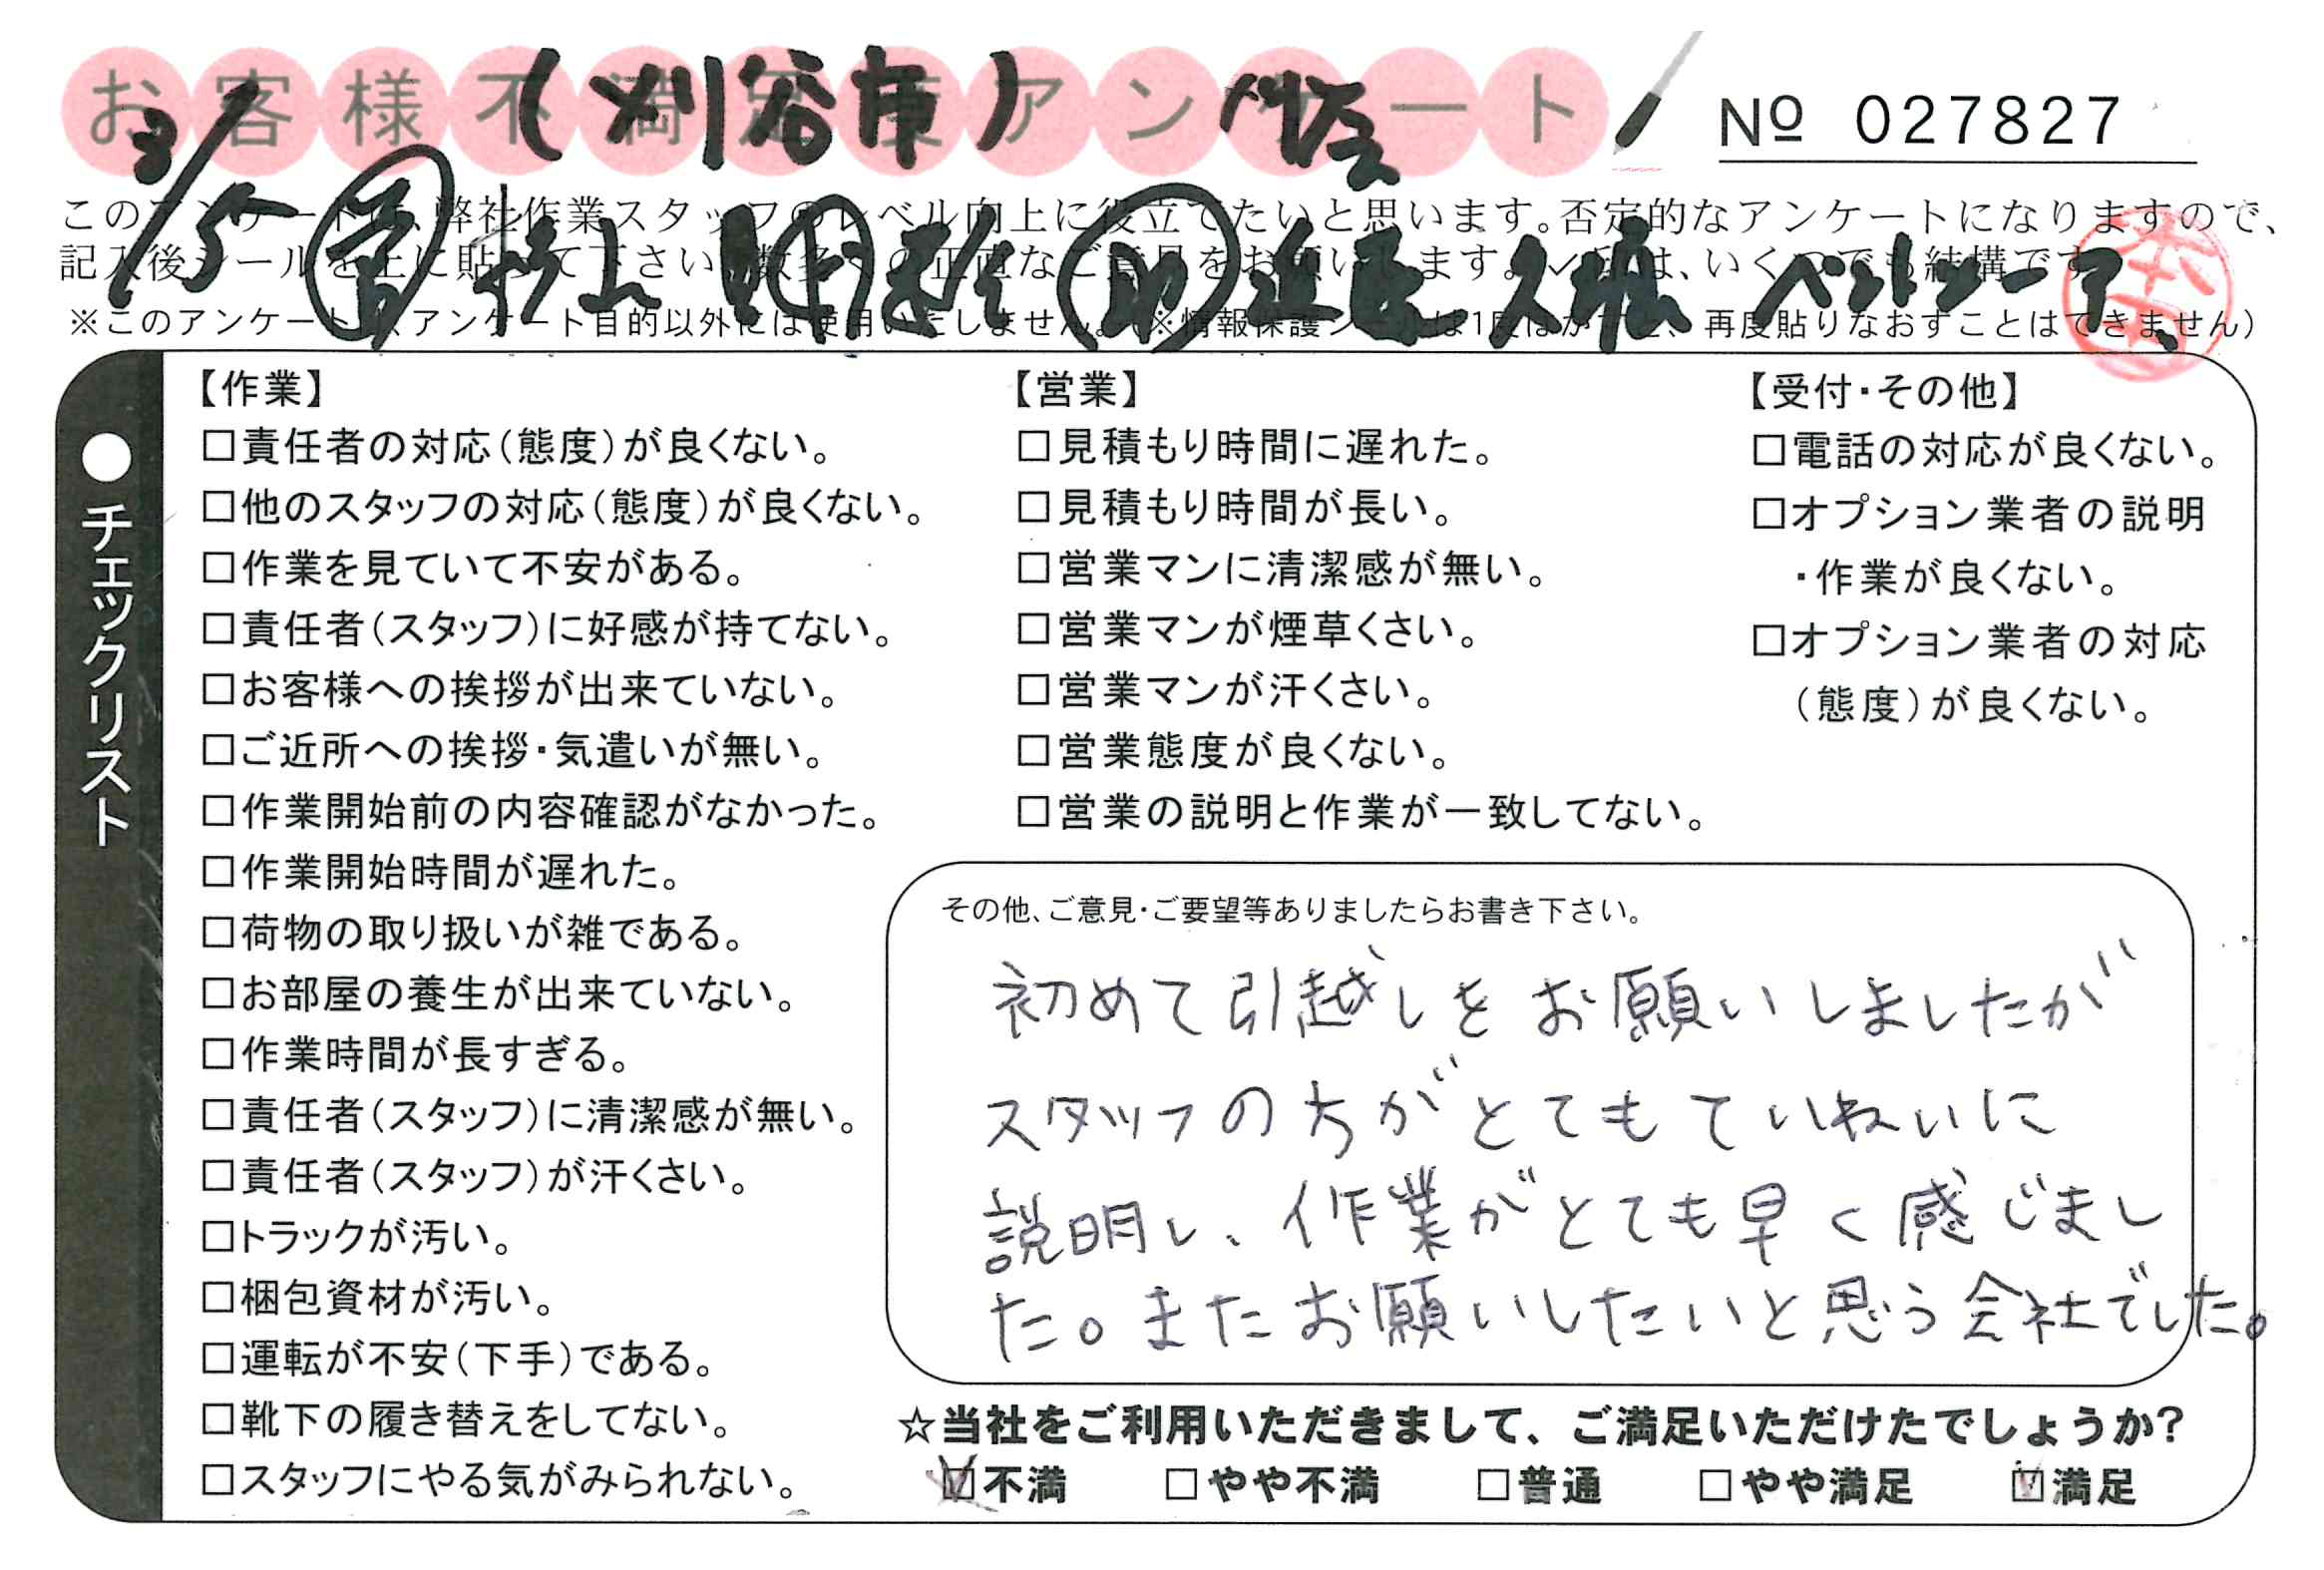 お客様不満足度アンケート
(刈谷市)
№ 027827
3/5
このアンケートは、弊社作業スタッフのレベル向上に役立てたいと思います。否定的なアンケートになりますので、
記入後シールを上に貼って下さい。数多くの正直なご意見をお願いします。✓印は、いくつでも結構です。
助 近藤
※このアンケートは、アンケート目的以外には使用いたしません。(※情報保護シールは1度はがすと、再度貼りなおすことはできません)
●チェックリスト
【作業】
□責任者の対応(態度)が良くない。
□他のスタッフの対応(態度)が良くない。
□作業を見ていて不安がある。
□責任者(スタッフ)に好感が持てない。
□お客様への挨拶が出来ていない。
□ご近所への挨拶・気遣いが無い。
□作業開始前の内容確認がなかった。
□作業開始時間が遅れた。
□荷物の取り扱いが雑である。
□お部屋の養生が出来ていない。
□作業時間が長すぎる。
□責任者(スタッフ)に清潔感が無い。
□責任者(スタッフ)が汗くさい。
□トラックが汚い。
□梱包資材が汚い。
□運転が不安(下手)である。
□靴下の履き替えをしてない。
□スタッフにやる気がみられない。
【営業】
□見積もり時間に遅れた。
□見積もり時間が長い。
□営業マンに清潔感が無い。
□営業マンが煙草くさい。
□営業マンが汗くさい。
□営業態度が良くない。
□営業の説明と作業が一致してない。
【受付・その他】
□電話の対応が良くない。
□オプション業者の説明
・作業が良くない。
□オプション業者の対応
(態度)が良くない。
その他、ご意見・ご要望等ありましたらお書き下さい。
初めて引越しをお願いしましたが
スタッフの方がとてもていねいに
説明し、作業がとても早く感じまし
た。またお願いしたいと思う会社でした。
☆当社をご利用いただきまして、ご満足いただけたでしょうか?
☑不満 □やや不満 □普通 □やや満足 ☑満足